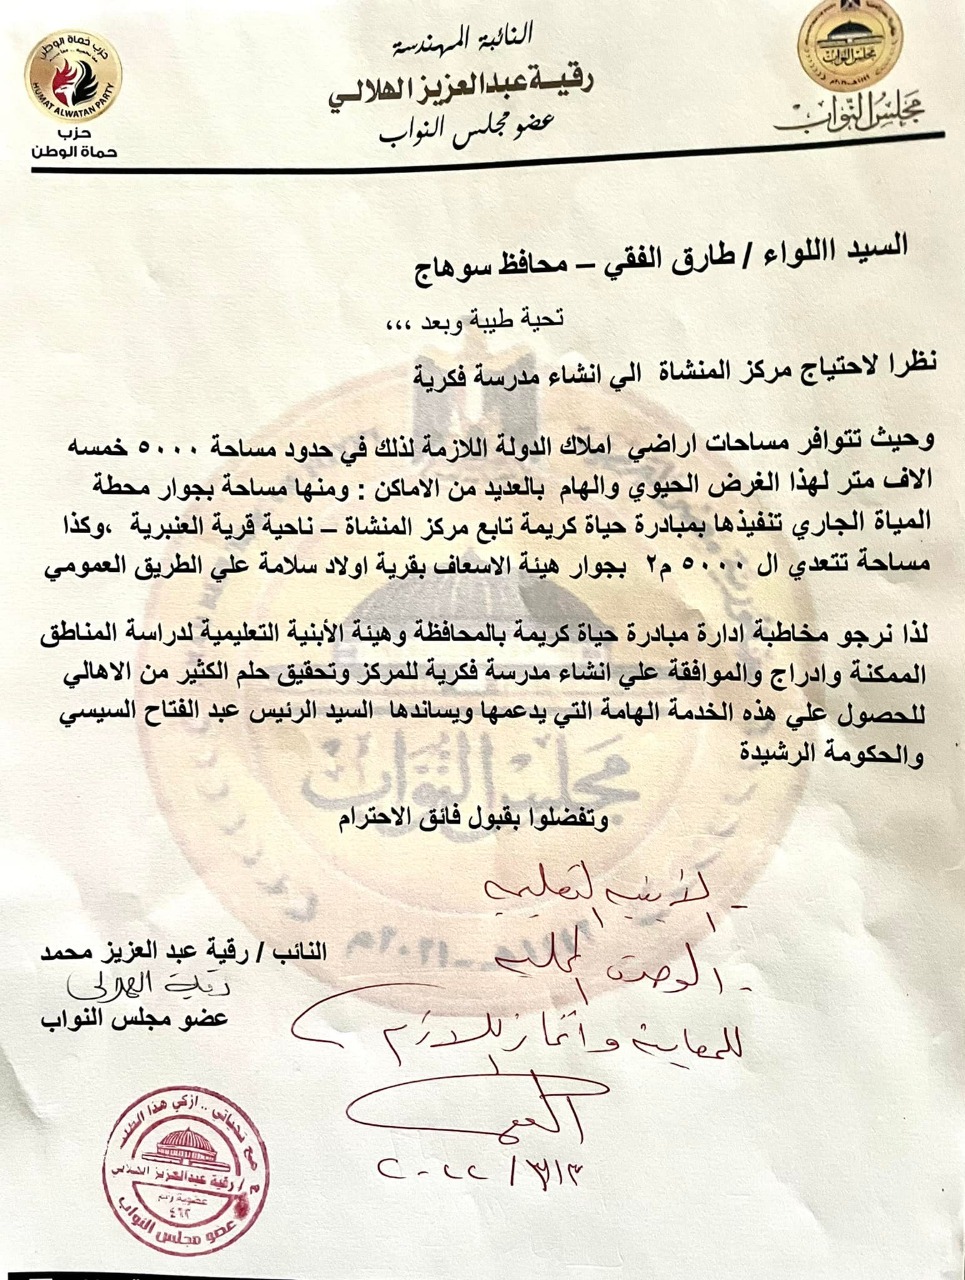 النائبة المهندسة
رقية عبدالعزيز الهلالي
عضو مجلس النواب
مجلس النواب
حزب حماة الوطن
HUMAT ALWATAN PARTY
حزب
حماة الوطن
السيد االلواء / طارق الفقي – محافظ سوهاج
تحية طيبة وبعد ،،،
نظرا لاحتياج مركز المنشاة الي انشاء مدرسة فكرية
وحيث تتوافر مساحات اراضي املاك الدولة اللازمة لذلك في حدود مساحة ٥٠٠٠ خمسه
الاف متر لهذا الغرض الحيوي والهام بالعديد من الاماكن : ومنها مساحة بجوار محطة
المياة الجاري تنفيذها بمبادرة حياة كريمة تابع مركز المنشاة – ناحية قرية العنبرية ،وكذا
مساحة تتعدي ال ٥٠٠٠ م٢ بجوار هيئة الاسعاف بقرية اولاد سلامة علي الطريق العمومي
لذا نرجو مخاطبة ادارة مبادرة حياة كريمة بالمحافظة وهيئة الأبنية التعليمية لدراسة المناطق
الممكنة وادراج والموافقة علي انشاء مدرسة فكرية للمركز وتحقيق حلم الكثير من الاهالي
للحصول علي هذه الخدمة الهامة التي يدعمها ويساندها السيد الرئيس عبد الفتاح السيسي
والحكومة الرشيدة
وتفضلوا بقبول فائق الاحترام
- الأبنية التعليمية
- الوحدة المحلية
للمعاينة واتخاذ اللازم
النائب / رقية عبد العزيز محمد
رقية الهلالى
عضو مجلس النواب
مع تحياتي .. ازكي هذا الطلب
رقية عبدالعزيز الهلالي
عضوية رقم
٤٦٢
عضو مجلس النواب